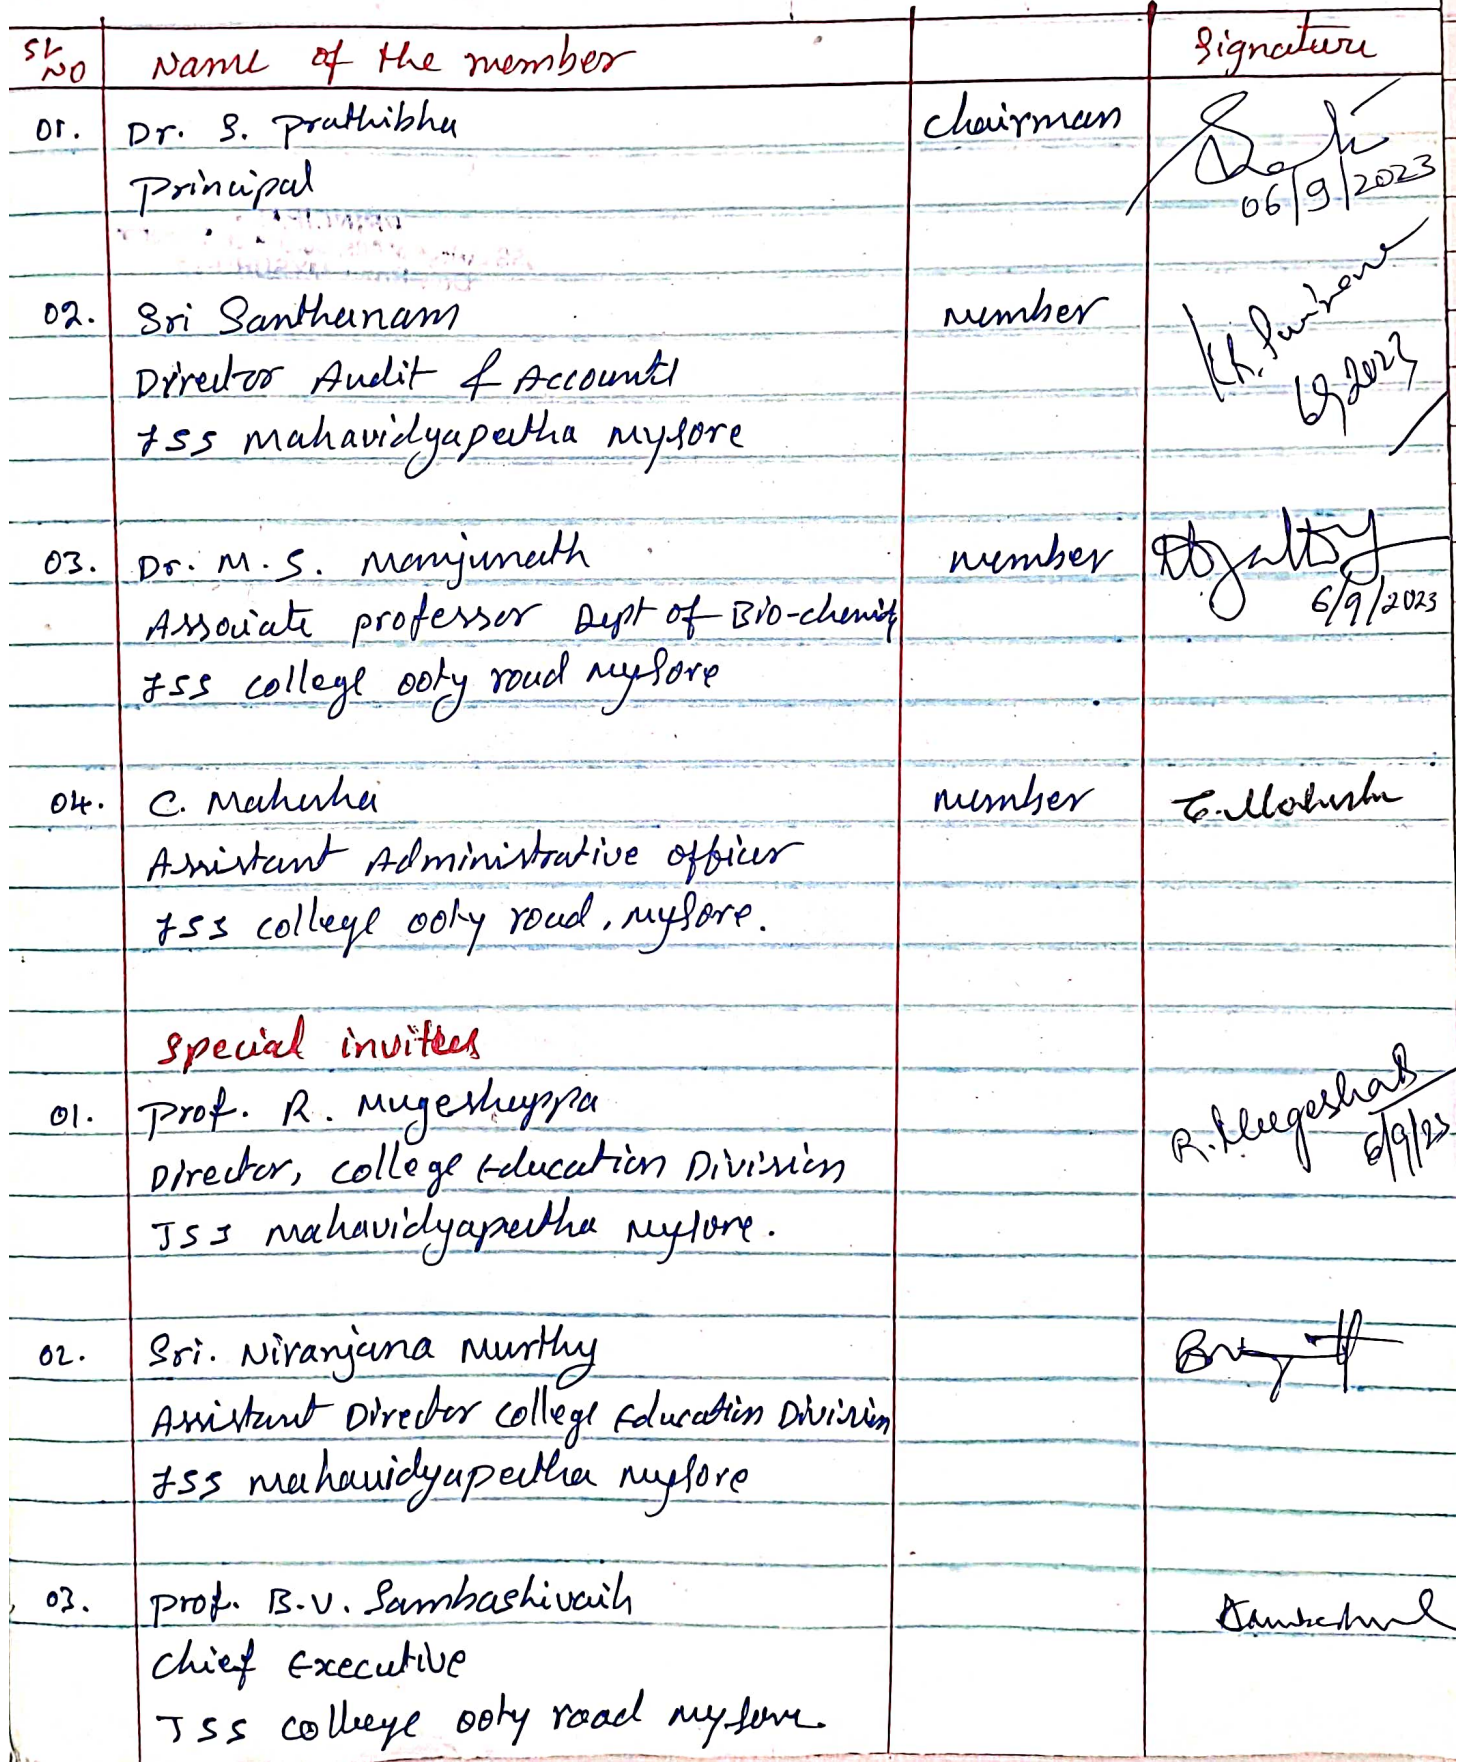 Sl No Name of the member Signature
01. Dr. S. Prathibha Chairman
Principal
06/9/2023
02. Sri Santhanam member
Director Audit & Accounts
JSS Mahavidyapeetha Mysore
03. Dr. M.S. Manjunath member
Associate professor Dept of Bio-chemist
6/9/2023
JSS college ooty road mysore
04. C. Mahesha member C. Mahesha
Assistant Administrative officer
JSS college ooty road, mysore.
Special invitees
01. Prof. R. Mugeshappa
6/9/23
Director, college Education Division
JSS mahavidyapeetha mysore.
02. Sri. Niranjana Murthy
Assistant Director college Education Division
JSS mahavidyapeetha mysore
03. Prof. B.V. Sambashivaih
Chief Executive
JSS college ooty road mysore.